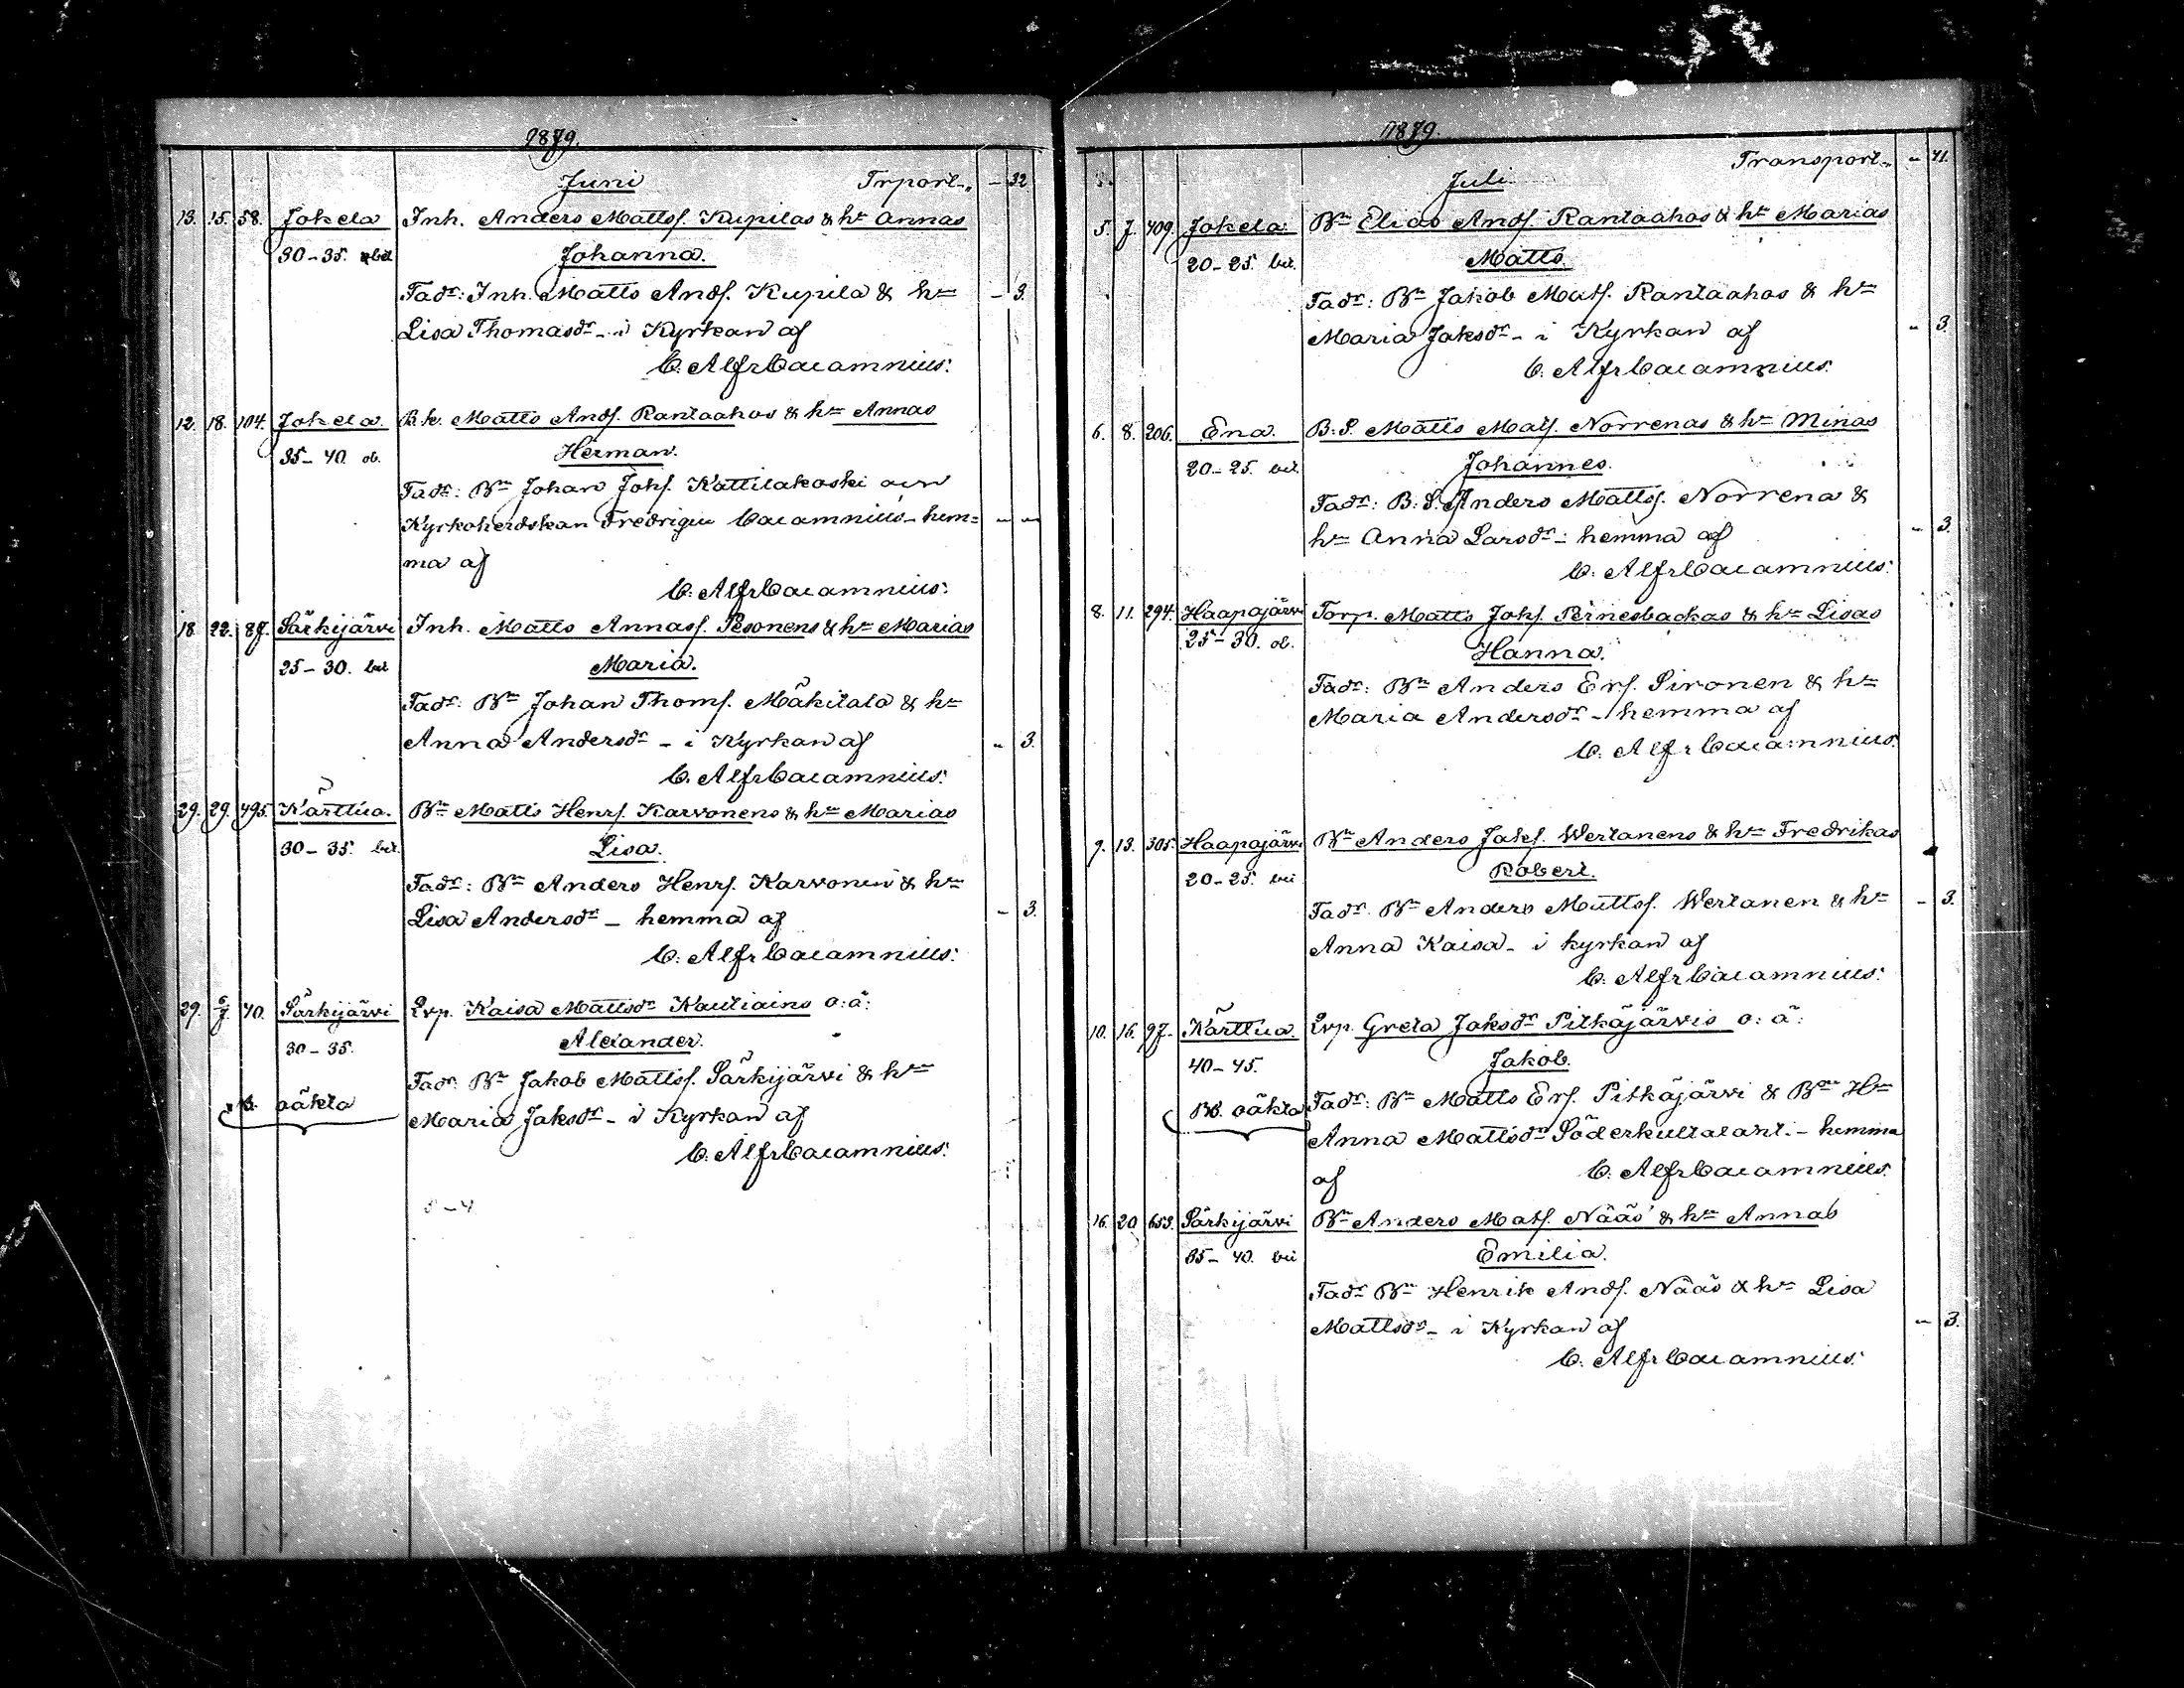 1879.
Juni Trport „ – 32
13. 15. 58. Jokela Inh. Anders Mattss. Kupilas & hr Annas
30–35. bet Johanna.
Fadr: Inh. Matts Ands. Kupila & hr – 3.
Lisa Thomasdr – i Kyrkan af
C. Alfr Cacamnius.
12. 18. 104. Jokela B.k. Matts Ands. Rantaahos & hr Annas
35–40. ob. Herman.
Fadr: Bn Johan Johs. Kattilakoski och
Kyrkoherdskan Fredrique Cacamnius – hem= – –
ma af
C. Alfr Cacamnius.
18. 22. 87. Särkijärvi Inh. Matts Annass. Pesonens & hr Marias
25–30. bet Maria.
Fadr: Bn Johan Thoms. Mäkitalo & hr
Anna Andersdr – i Kyrkan af – 3.
C. Alfr Cacamnius.
29. 29. 495. Kärttua. Bn Matts Henrs. Karvonens & hr Marias
30–35. bet. Lisa.
Fadr: Bn Anders Henrs. Karvonen & hr
Lisa Andersdr – hemma af – 3.
C. Alfr Cacamnius.
29. 6/7 40. Särkijärvi Lvp. Kaisa Mattsdr Kautiains o: ä:
30–35. Alexander.
Fadr: Bn Jakob Mattss. Särkijärvi & hr
oäkta Maria Jaksdr – i Kyrkan af
C. Alfr Cacamnius.
5–4
1879.
Transport „ – 41.
Juli
5. 7. 409. Jokela Bn Elias Ands. Rantaahos & hr Marias
20–25. bet. Matts.
Fadr: Bn Jakob Mats. Rantaahos & hr
Maria Jaksdr – i Kyrkan af – 3.
C. Alfr Cacamnius.
6. 8. 206. Ena. B.S. Matts Mats. Norrenas & hr Minas
20–25. bet. Johannes.
Fadr: B.S. Anders Mattss. Norrena &
hr Anna Larsdr – hemma af – 3.
C. Alfr Cacamnius.
8. 11. 294. Haapajärvi Torp. Matts Johs. Pernesbackas & hr Lisas
25–30. ob. Hanna.
Fadr: Bn Anders Ers. Sironen & hr
Maria Andersdr – hemma af
C. Alfr Cacamnius.
9. 13. 305. Haapajärvi Bn Anders Jaks. Wertanens & hr Fredrikas
20–25. bet Robert.
Fadr. Bn Anders Mattss. Wertanen & hr – 3.
Anna Kaisa – i kyrkan af
C. Alfr Cacamnius.
10. 16. 97. Kärttua. Lvp. Greta Jaksdr Pitkäjärvis o: ä:
40–45. Jakob.
NB. oäkta Fadr: Bn Matts Ers. Pitkäjärvi & Bne Hr
Anna Mattsdr Söderkultalaht: – hemma
af C. Alfr Cacamnius.
16. 20. 653. Särkijärvi Bn Anders Mats. Nääs' & hr Annas
35–40. bet Emilia.
Fadr Bn Henrik Ands. Nääs & hr Lisa
Mattsdr – i Kyrkan af – 3.
C. Alfr Cacamnius.